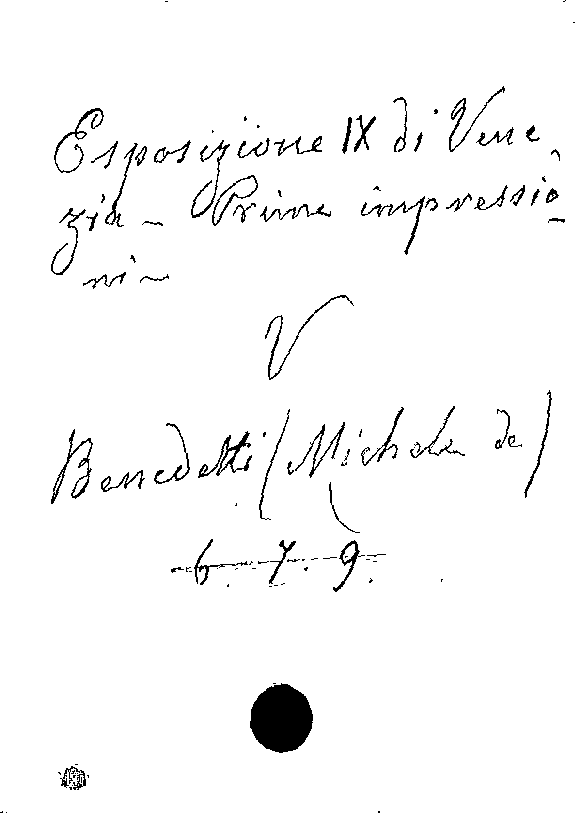 Esposizione IX di Vene-
zia - Prime impressio-
ni -
V
Benedetti (Michele de)
6. 7. 9.